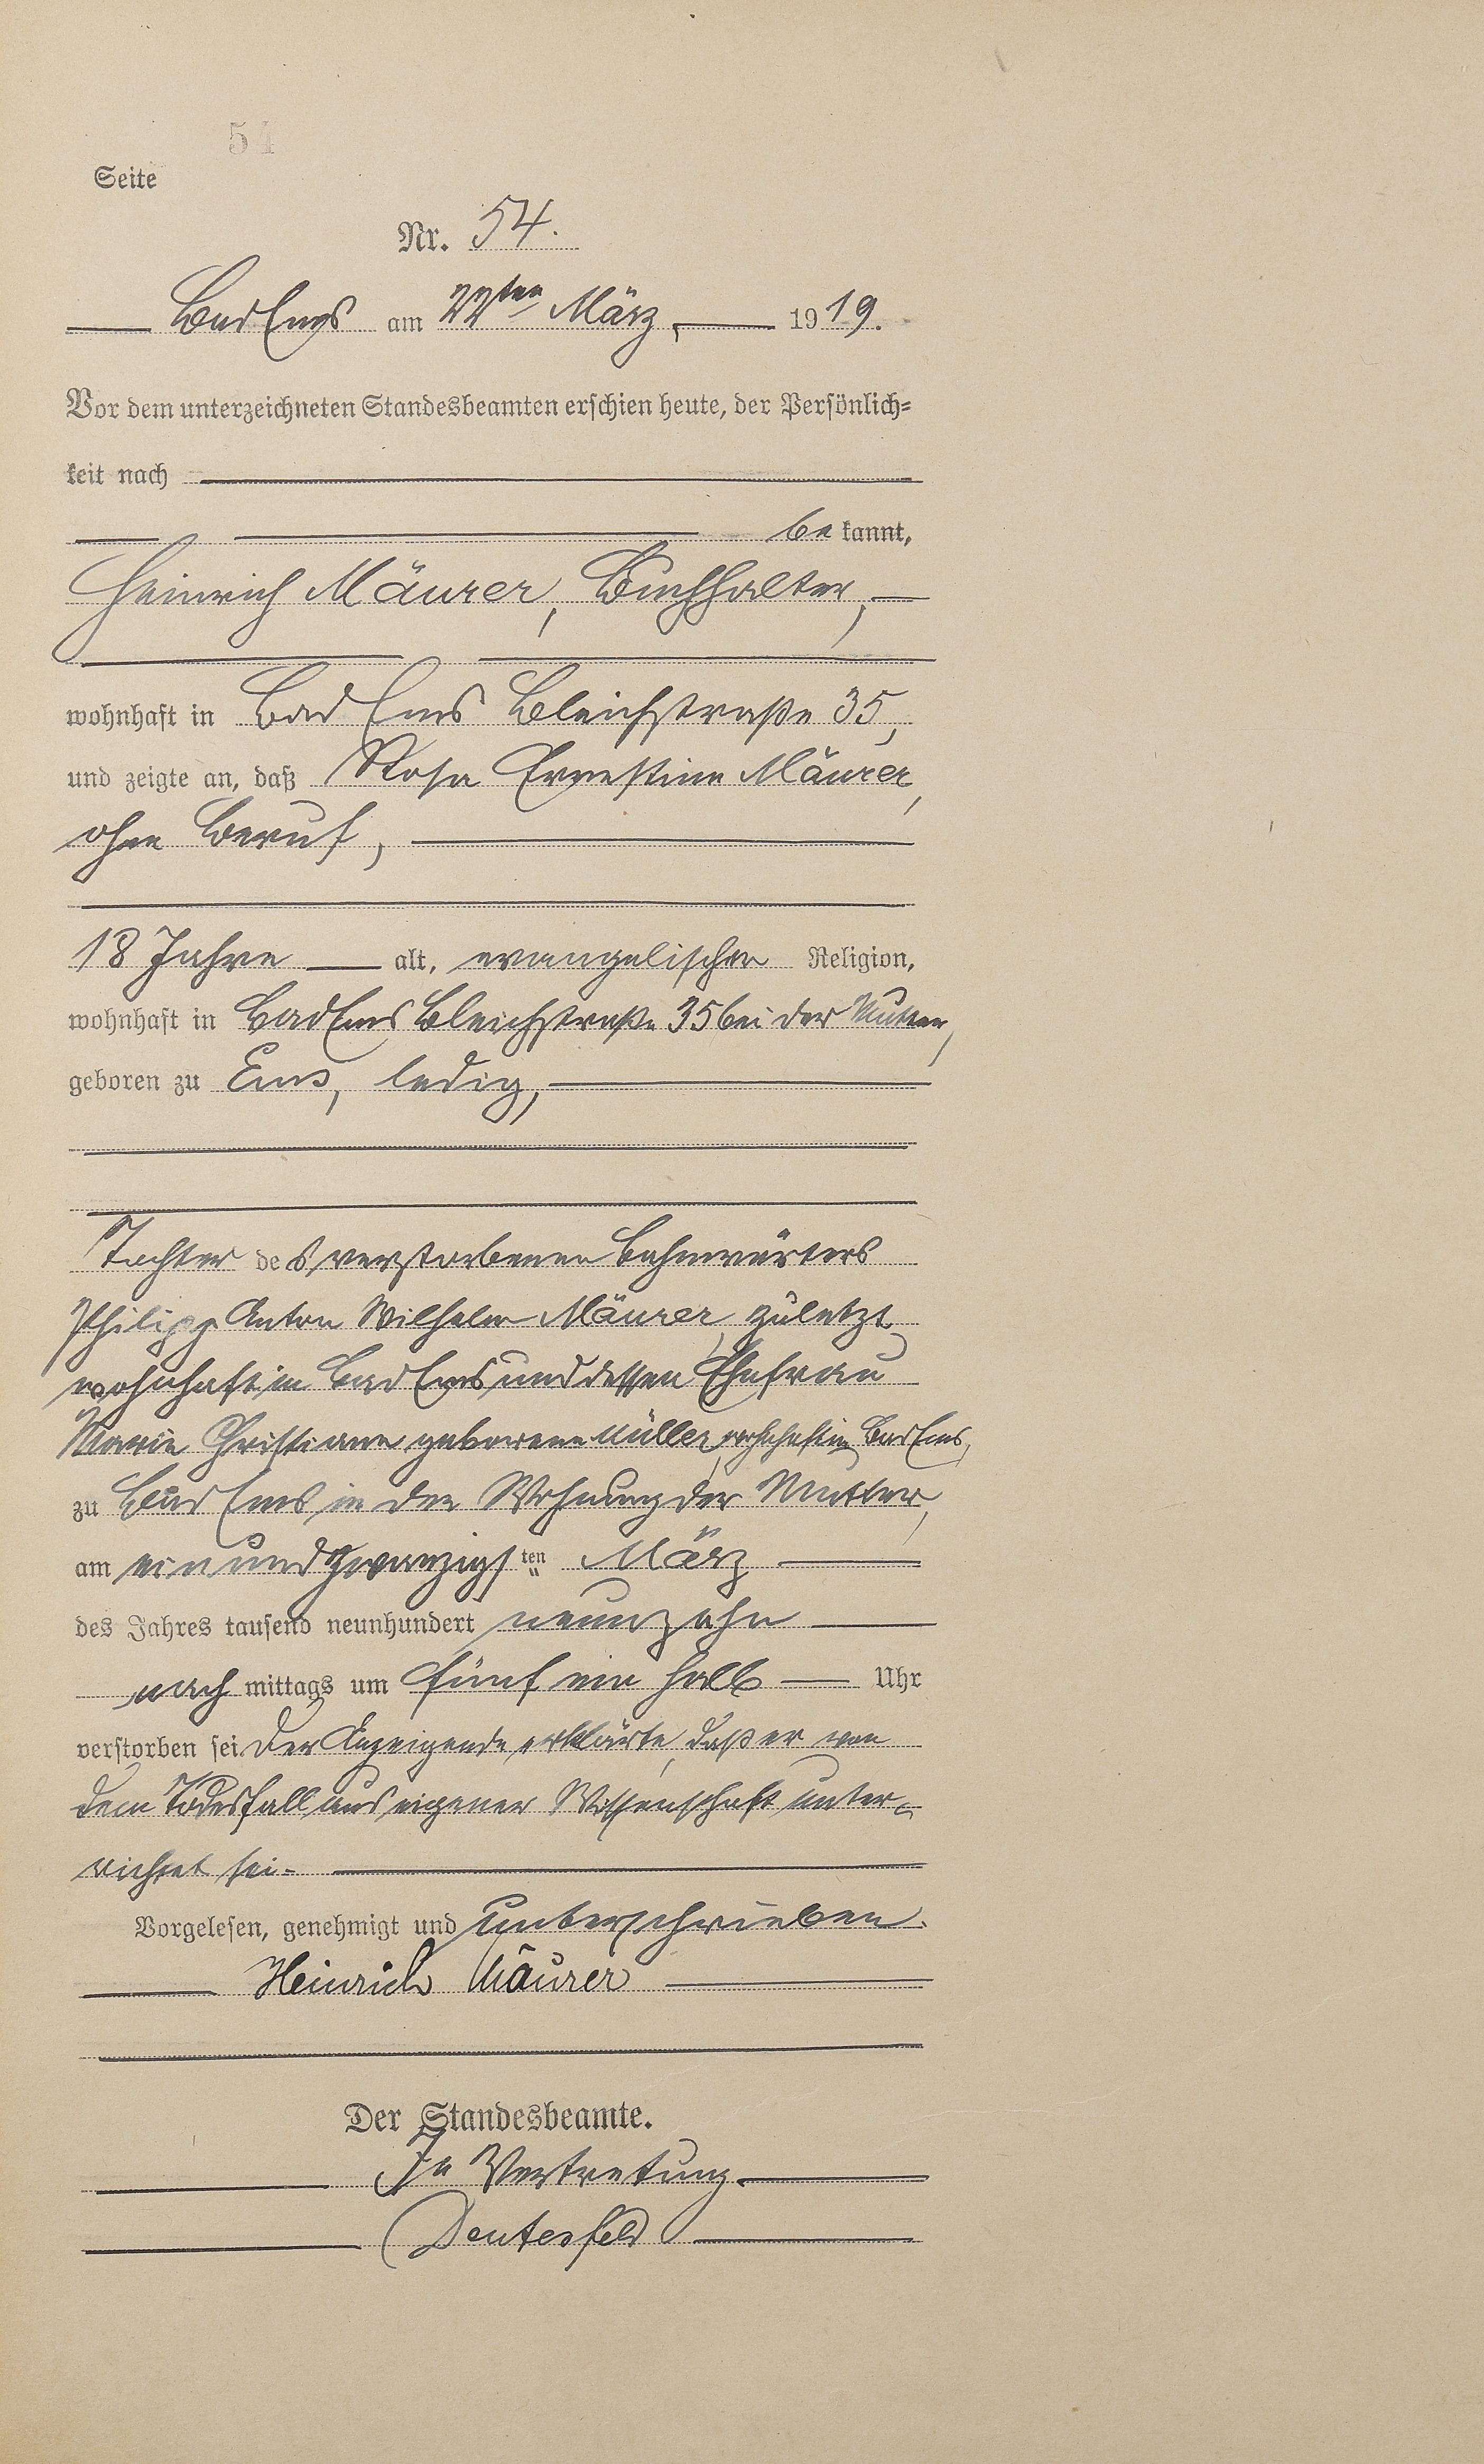 54
Seite
Nr. 54.
Bad Ems am 22ten März, 1919.
Vor dem unterzeichneten Standesbeamten erschien heute, der Persönlich-
keit nach
bekannt,
Heinrich Mäurer, Buchhalter,
wohnhaft in Bad Ems Bleichstraße 35,
und zeigte an, daß Rosa Ernestine Mäurer,
ohne Beruf,
18 Jahre alt, evangelischer Religion,
wohnhaft in Bad Ems Bleichstraße 35 bei der Mutter,
geboren zu Ems, ledig,
Tochter des verstorbenen Bahnwärters
Philipp Anton Wilhelm Mäurer, zuletzt
wohnhaft in Bad Ems und dessen Ehefrau
Marie Christiane geborene Müller, wohnhaft in Bad Ems,
zu Bad Ems in der Wohnung der Mutter,
am einundzwanzigsten März
des Jahres tausend neunhundert neunzehn
nachmittags um fünf ein halb Uhr
verstorben sei. Der Anzeigende erklärte, daß er von
dem Todesfall aus eigener Wissenschaft unter-
richtet sei.
Vorgelesen, genehmigt und unterschrieben.
Heinrich Mäurer
Der Standesbeamte.
In Vertretung.